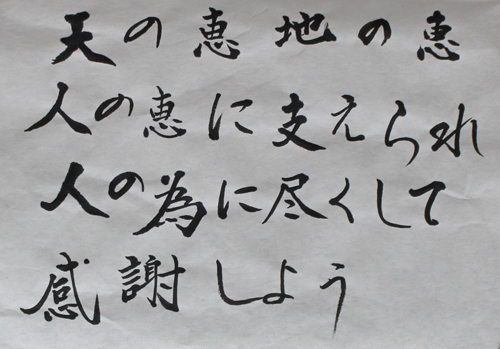 天の恵地の恵
人の恵に支えられ
人の為に尽くして
感謝しよう